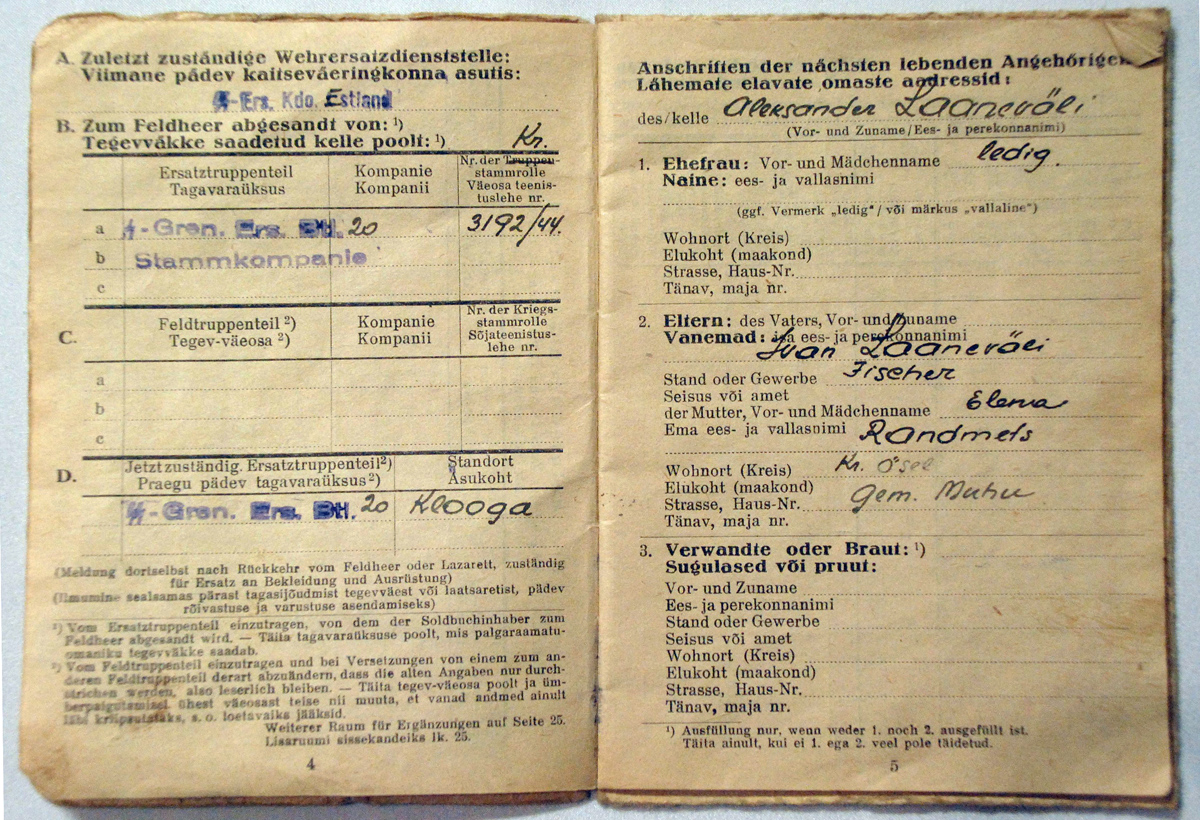 A. Zuletzt zuständige Wehrersatzdienststelle:
Viimane pädev kaitseväeringkonna asutis:
ᛋᛋ-Ers. Kdo. Estland
B. Zum Feldheer abgesandt von: ¹)
Tegevväkke saadetud kelle poolt: ¹)
Kr.
Ersatztruppenteil
Tagavaraüksus
Kompanie
Kompanii
Nr. der Truppen-
stammrolle
Väeosa teenis-
tuslehe nr.
a ᛋᛋ-Gren. Ers. Btl. 20 3192/44.
b Stammkompanie
c
C.
Feldtruppenteil ²)
Tegev-väeosa ²)
Kompanie
Kompanii
Nr. der Kriegs-
stammrolle
Sõjateenistus-
lehe nr.
a
b
c
D.
Jetzt zuständig. Ersatztruppenteil²)
Praegu pädev tagavaraüksus²)
Standort
Asukoht
ᛋᛋ-Gren. Ers. Btl. 20 Klooga
(Meldung dortselbst nach Rückkehr vom Feldheer oder Lazarett, zuständig
für Ersatz an Bekleidung und Ausrüstung)
(Ilmumine sealsamas pärast tagasijõudmist tegevväest või laatsaretist, pädev
rõivastuse ja varustuse asendamiseks)
¹) Vom Ersatztruppenteil einzutragen, von dem der Soldbuchinhaber zum
Feldheer abgesandt wird. — Täita tagavaraüksuse poolt, mis palgaraamatu-
omaniku tegevväkke saadab.
²) Vom Feldtruppenteil einzutragen und bei Versetzungen von einem zum an-
deren Feldtruppenteil derart abzuändern, dass die alten Angaben nur durch-
strichen werden, also leserlich bleiben. — Täita tegev-väeosa poolt ja üm-
berpaigutamisel ühest väeosast teise nii muuta, et vanad andmed ainult
läbi kriipsutataks, s. o. loetavaiks jääksid.
Weiterer Raum für Ergänzungen auf Seite 25.
Lisaruumi sissekandeiks lk. 25.
4
Anschriften der nächsten lebenden Angehörigen
Lähemate elavate omaste aadressid:
des/kelle Aleksander Laaneväli
(Vor- und Zuname/Ees- ja perekonnanimi)
1. Ehefrau: Vor- und Mädchenname ledig.
Naine: ees- ja vallasnimi
(ggf. Vermerk „ledig“ / või märkus „vallaline“)
Wohnort (Kreis)
Elukoht (maakond)
Strasse, Haus-Nr.
Tänav, maja nr.
2. Eltern: des Vaters, Vor- und Zuname
Vanemad: isa ees- ja perekonnanimi
Ivan Laaneväli
Stand oder Gewerbe Fischer
Seisus või amet
der Mutter, Vor- und Mädchenname Elena
Ema ees- ja vallasnimi Randmets
Wohnort (Kreis) Kr. Ösel
Elukoht (maakond)
Strasse, Haus-Nr. Gem. Muhu
Tänav, maja nr.
3. Verwandte oder Braut: ¹)
Sugulased või pruut:
Vor- und Zuname
Ees- ja perekonnanimi
Stand oder Gewerbe
Seisus või amet
Wohnort (Kreis)
Elukoht (maakond)
Strasse, Haus-Nr.
Tänav, maja nr.
¹) Ausfüllung nur, wenn weder 1. noch 2. ausgefüllt ist.
Täita ainult, kui ei 1. ega 2. veel pole täidetud.
5